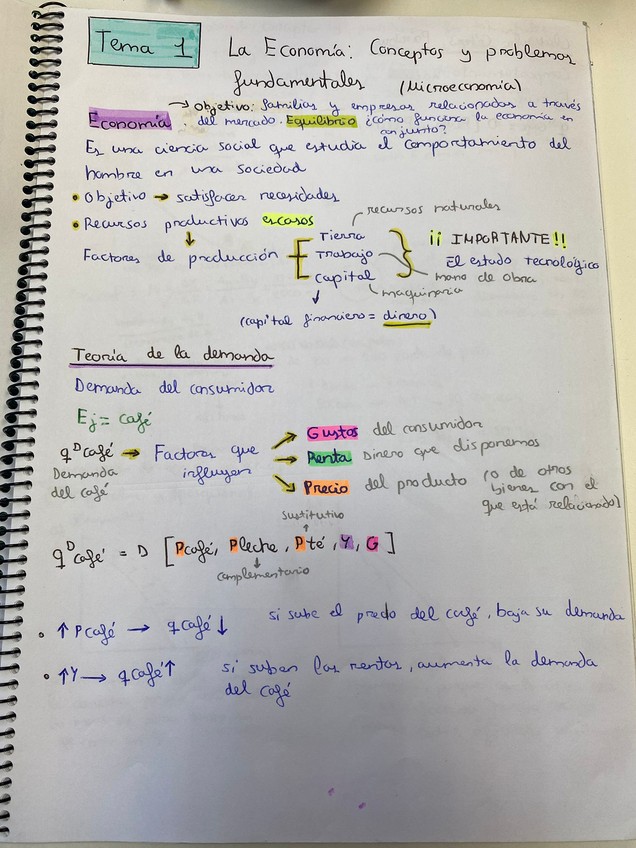 Tema 1 La Economía: Conceptos y problemas
fundamentales (Microeconomía)
→ Objetivo: familias y empresas relacionadas a través
Economía . del mercado. Equilibrio ¿cómo funciona la economía en
conjunto?
Es una ciencia social que estudia el comportamiento del
hombre en una sociedad
• Objetivo → satisfacer necesidades
• Recursos productivos escasos
recursos naturales
Factores de producción [ Tierra
Trabajo
Capital
¡¡ IMPORTANTE!!
El estado tecnológico
mano de obra
maquinaria
(capital financiero = dinero)
Teoría de la demanda
Demanda del consumidor
Ej= café
qᴰcafé → Factores que
influyen
Demanda
del café
Gustos del consumidor
Renta Dinero que disponemos
Precio del producto (o de otros
bienes con el
que está relacionado)
sustitutivo
qᴰcafé = D [Pcafé, Pleche, Pté, Y, G]
complementario
• ↑Pcafé → qcafé↓ si sube el precio del café, baja su demanda
• ↑Y → qcafé↑ si suben las rentas, aumenta la demanda
del café